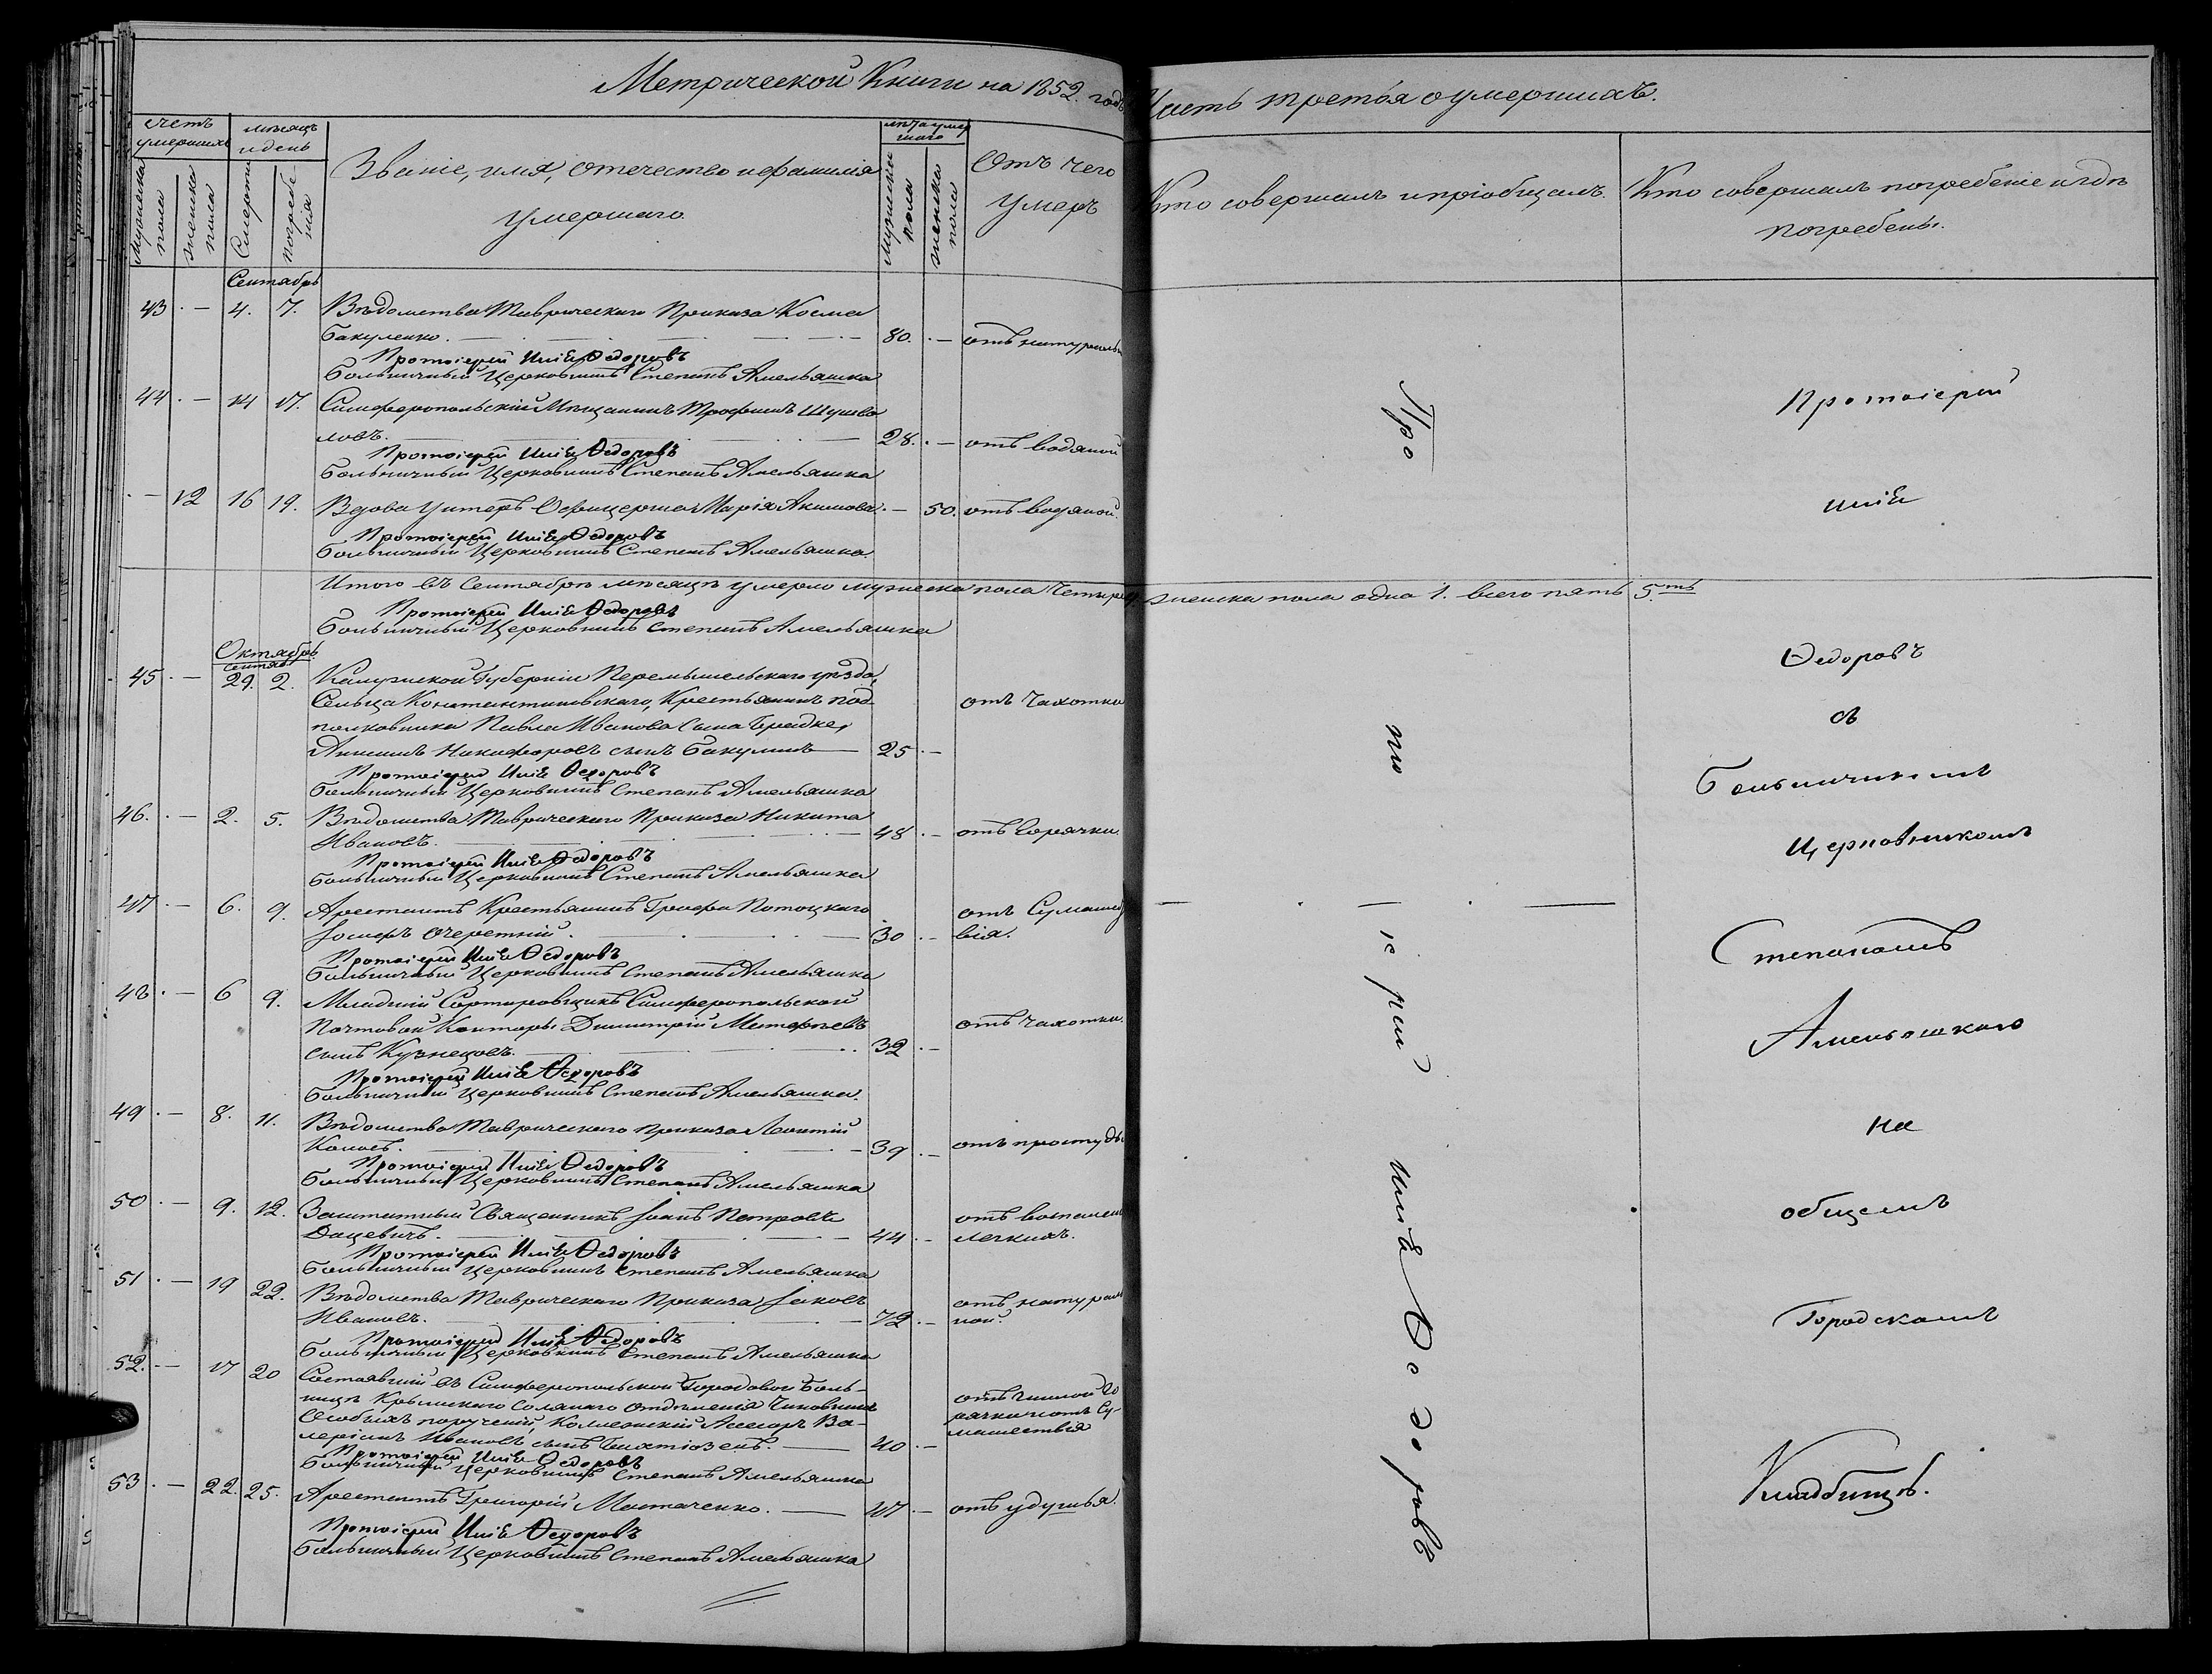 Метрической Книги на 1852. годъ Часть третья о умершихъ.
счетъ умершихъ
мѣсяцъ и день
Званіе, имя, отечество и фамилія умершаго.
лѣта умершаго
Отъ чего умеръ
Кто совершалъ и пріобщалъ.
Кто совершалъ погребеніе и гдѣ погребены.
мужеска пола
женска пола
Смерти
погребенія
мужеска пола
женска пола
Сентябрь
43 . — 4. 7. Вѣдомства Таврическаго Приказа Косма
Бакуленко. — 80. . — отъ натуральн
Протоіерей Илія Ѳедоровъ
Больничный Церковникъ Степанъ Амельяшка
44 . — 14 17. Симферопольскій Мѣщанинъ Трофимъ Шува
ловъ. — 28. . — отъ водяной
Протоіерей Илія Ѳедоровъ
Больничный Церковникъ Степанъ Амельяшка
. — 12 16 19. Вдова Унтеръ Офицерша Марія Акимова . — 50. отъ водяной.
Протоіерей Илія Ѳедоровъ
Больничный Церковникъ Степанъ Амельяшка.
Итого въ Сентябрѣ мѣсяцѣ умерло мужеска пола Четыре 4. женска пола одна 1. всего пять 5.ть
Протоіерей Илія Ѳедоровъ
Больничный Церковникъ Степанъ Амельяшка
Октябрь
Сентяб.
45 . — 29. 2. Калужской Губерніи Перемышельскаго уѣзда,
Сельца Константиновскаго, Крестьянинъ под отъ чахотки
полковника Павла Иванова Сына
Никифоровъ сынъ Бакулинъ — 25 . —
Протоіерей Илія Ѳедоровъ
Больничный Церковникъ Степанъ Амельяшка
46. . — 2. 5. Вѣдомства Таврическаго Приказа Никита
Ивановъ. — 48 . — отъ горячки.
Протоіерей Илія Ѳедоровъ
Больничный Церковникъ Степанъ Амельяшка
47 . — 6. 9. Арестантъ Крестьянинъ Графа Потоцкаго отъ Сумашед
Іосифъ Очеретній. — 30 . — вія.
Протоіерей Илія Ѳедоровъ
Больничный Церковникъ Степанъ Амельяшка
48 . — 6 9. Младшій Сортировщикъ Симферопольской
Почтовой Конторы Димитрій Матфѣевъ отъ чахотки.
сынъ Кузнецовъ. — 32 . —
Протоіерей Илія Ѳедоровъ
Больничный Церковникъ Степанъ Амельяшка.
49 . — 8. 11. Вѣдомства Таврическаго Приказа Леонтій
— 39 . — отъ простуды
Протоіерей Илія Ѳедоровъ
Больничный Церковникъ Степанъ Амельяшка
50 . — 9. 12. Заштатный Священникъ Іоанъ Петровъ отъ воспален
Дацевичъ. — 44 . — легкихъ.
Протоіерей Илія Ѳедоровъ
Больничный Церковникъ Степанъ Амельяшка
51 . — 19 22. Вѣдомства Таврическаго Приказа Іаковъ отъ натураль
Ивановъ. — 72 . — ной.
Протоіерей Илія Ѳедоровъ
Больничный Церковникъ Степанъ Амельяшка
52. . — 17 20 Состоявшій въ Симферопольской Городовой Боль-
ницѣ Крымскаго Солянаго Отдѣленія Чиновникъ отъ гнилой го
Особыхъ порученій, Колежскій Асесоръ Ва- рячки и отъ Су-
леріанъ Ивановъ сынъ — 40 . — машествія
Протоіерей Илія Ѳедоровъ
Больничный Церковникъ Степанъ Амельяшка
53 . — 22. 25. Арестантъ Григорій — 47 . — отъ удушья.
Протоіерей Илія Ѳедоровъ
Больничный Церковникъ Степанъ Амельяшка
Про
то
іе
рей
Илія
Ѳедоровъ
Протоіерей
Илія
Ѳедоровъ
съ
Больничнымъ
Церковникомъ
Степаномъ
Амельяшкаю
на
общемъ
Городскомъ
Кладбищѣ.